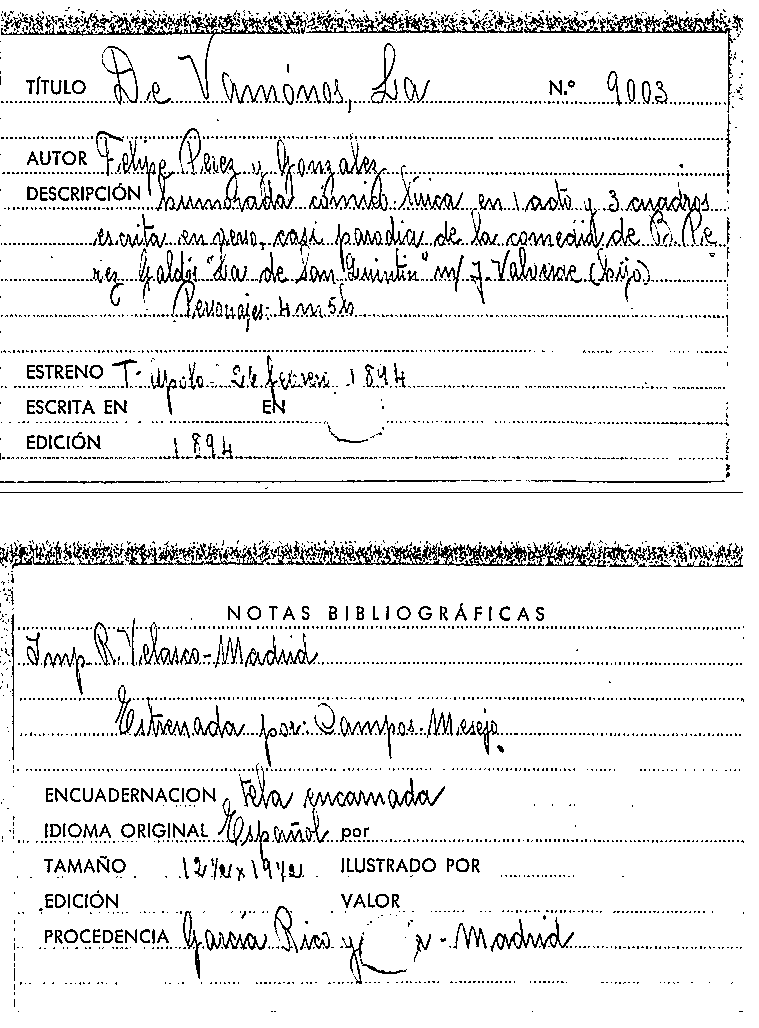 TÍTULO De Vamónos, La N.º 9003
AUTOR Felipe Perez y Gonzalez
DESCRIPCIÓN humorada cómico lírica en 1 acto y 3 cuadros
escrita en verso, casi parodia de la comedia de B. Pe
rez Galdós "La de San Quintín" m/ J. Valverde (hijo)
Personajes: 4 m 5 h
ESTRENO T. Apolo - 26 febrero 1894
ESCRITA EN EN
EDICIÓN 1894
NOTAS BIBLIOGRÁFICAS
Imp R. Velasco - Madrid
Estrenada por: Campos - Mesejo.
ENCUADERNACION Tela encarnada
IDIOMA ORIGINAL Español por
TAMAÑO 12 1/2 x 19 1/2 ILUSTRADO POR
EDICIÓN VALOR
PROCEDENCIA García Rico y - Madrid